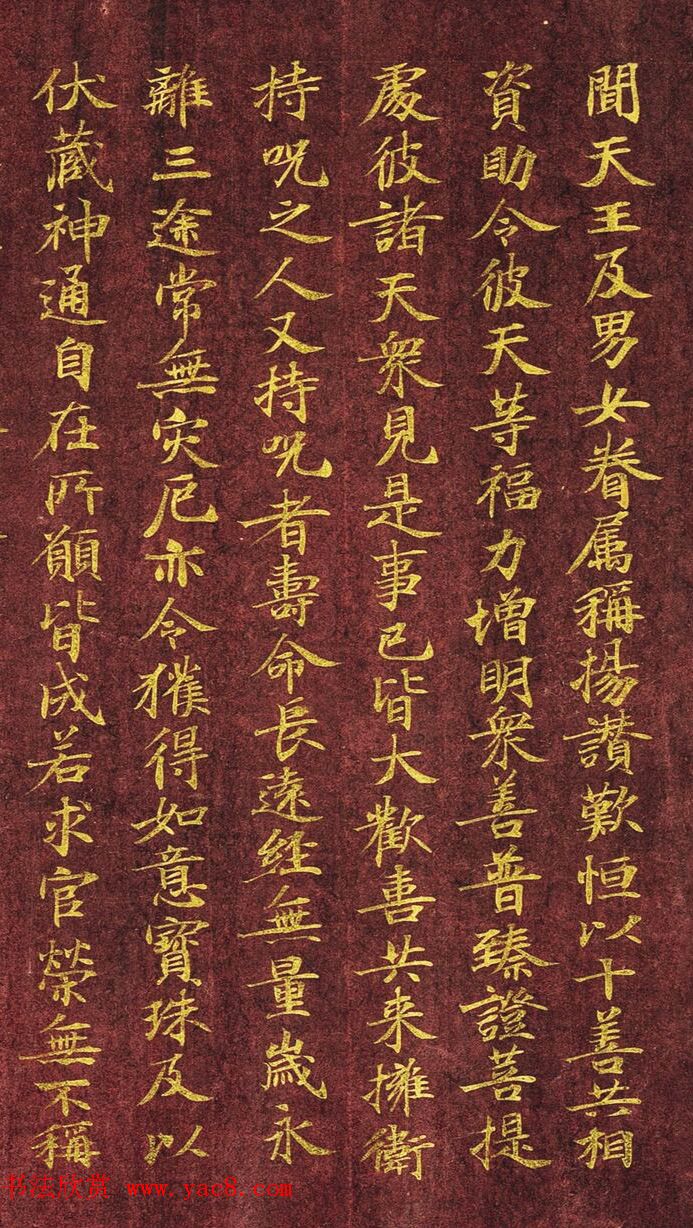 聞天王及男女眷属稱揚讃歎恒以十善共相
資助令彼天等福力增明衆善普臻證菩提
處彼諸天衆見是事已皆大歡喜共来擁衛
持呪之人又持呪者壽命長遠經無量歲永
離三途常無灾厄亦令獲得如意寳珠及以
伏藏神通自在所願皆成若求官榮無不稱
书法欣赏 www.yac8.com